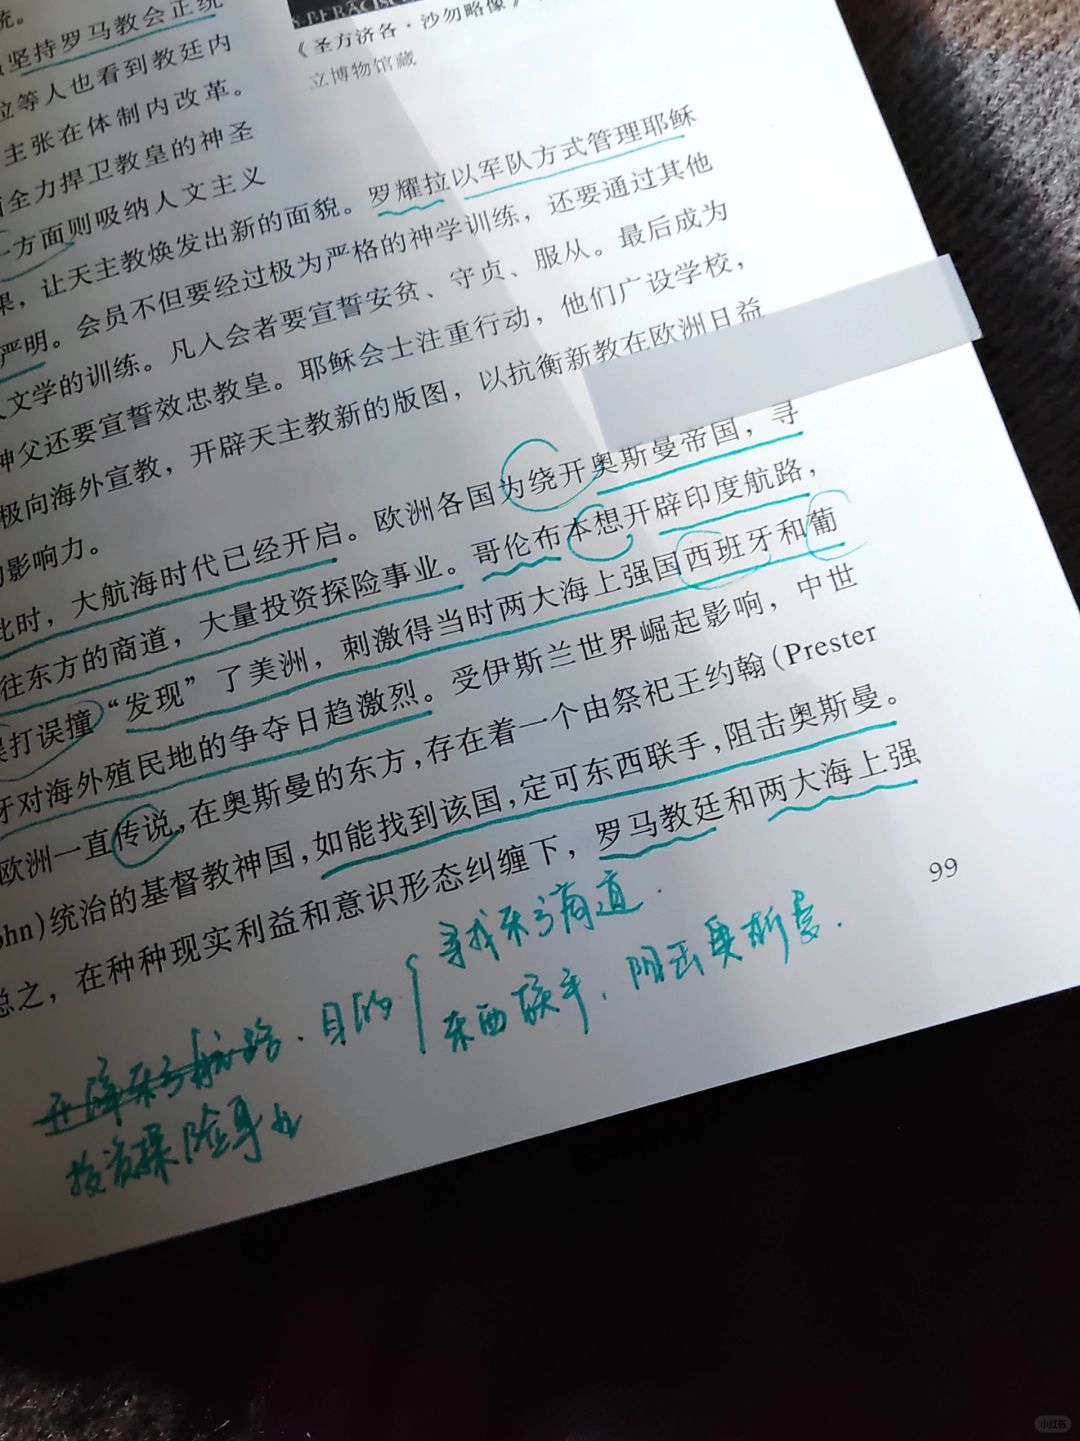 统。
坚持罗马教会正统
S.FRĀCISC
《圣方济各·沙勿略像》
立博物馆藏
拉等人也看到教廷内
主张在体制内改革。
全力捍卫教皇的神圣
一方面则吸纳人文主义
果，让天主教焕发出新的面貌。罗耀拉以军队方式管理耶稣
严明。会员不但要经过极为严格的神学训练，还要通过其他
人文学的训练。凡入会者要宣誓安贫、守贞、服从。最后成为
神父还要宣誓效忠教皇。耶稣会士注重行动，他们广设学校，
极向海外宣教，开辟天主教新的版图，以抗衡新教在欧洲日益
的影响力。
此时，大航海时代已经开启。欧洲各国为绕开奥斯曼帝国，寻
往东方的商道，大量投资探险事业。哥伦布本想开辟印度航路，
误打误撞“发现”了美洲，刺激得当时两大海上强国西班牙和葡
牙对海外殖民地的争夺日趋激烈。受伊斯兰世界崛起影响，中世
欧洲一直传说，在奥斯曼的东方，存在着一个由祭祀王约翰(Prester
ohn)统治的基督教神国，如能找到该国，定可东西联手，阻击奥斯曼。
总之，在种种现实利益和意识形态纠缠下，罗马教廷和两大海上强
99
寻找东方商道.
目的
东西联手.阻击奥斯曼.
投资探险事业
小红书